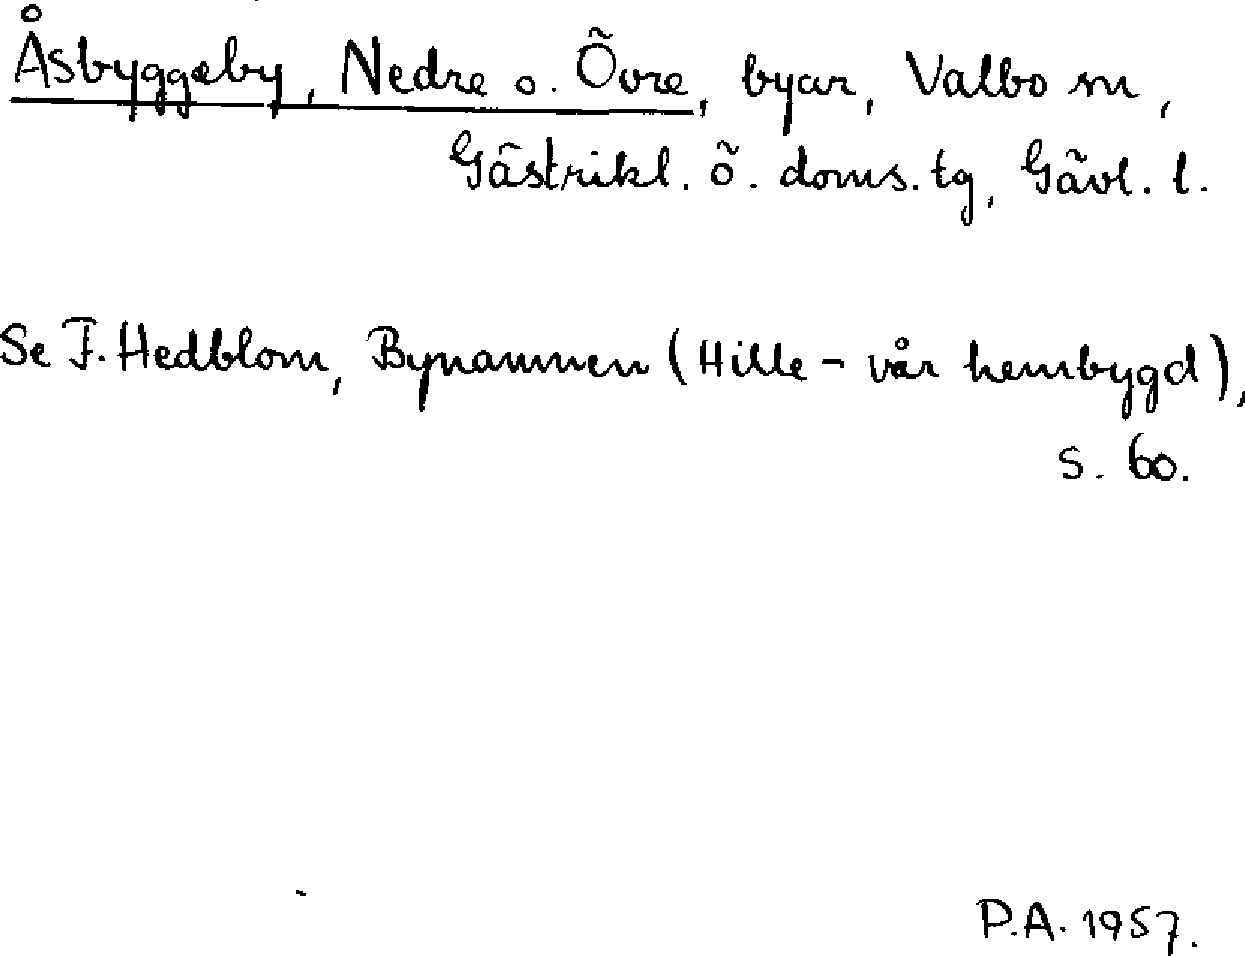 Åsbyggeby, Nedre o. Övre, byar, Valbo sn,
Gästrikl. ö. doms. tg, Gävl. l.
Se F. Hedblom, Bynamnen (Hille - vår hembygd),
s. 60.
P.A. 1957.